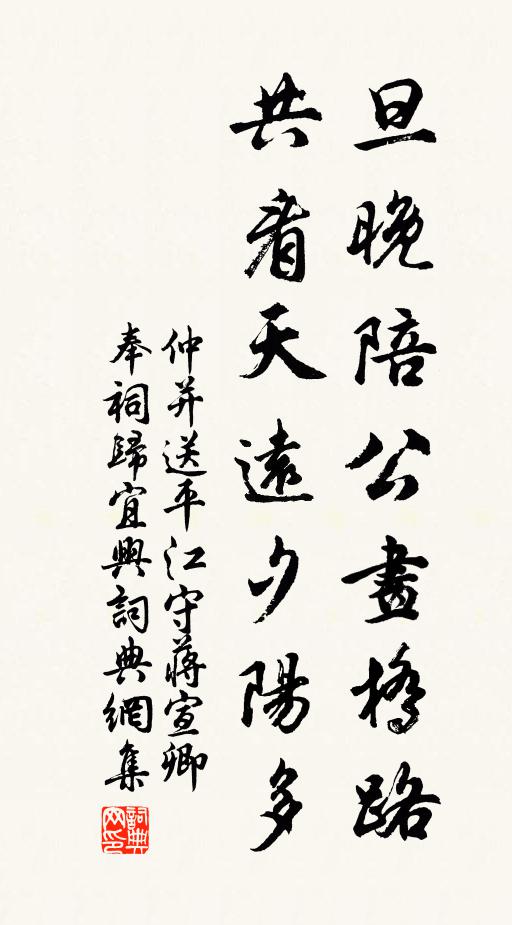 旦晚陪公畫橋路
共看天遠夕陽多
仲并送平江守蔣宣卿
奉祠歸宜興詞典網集
詞典
网印